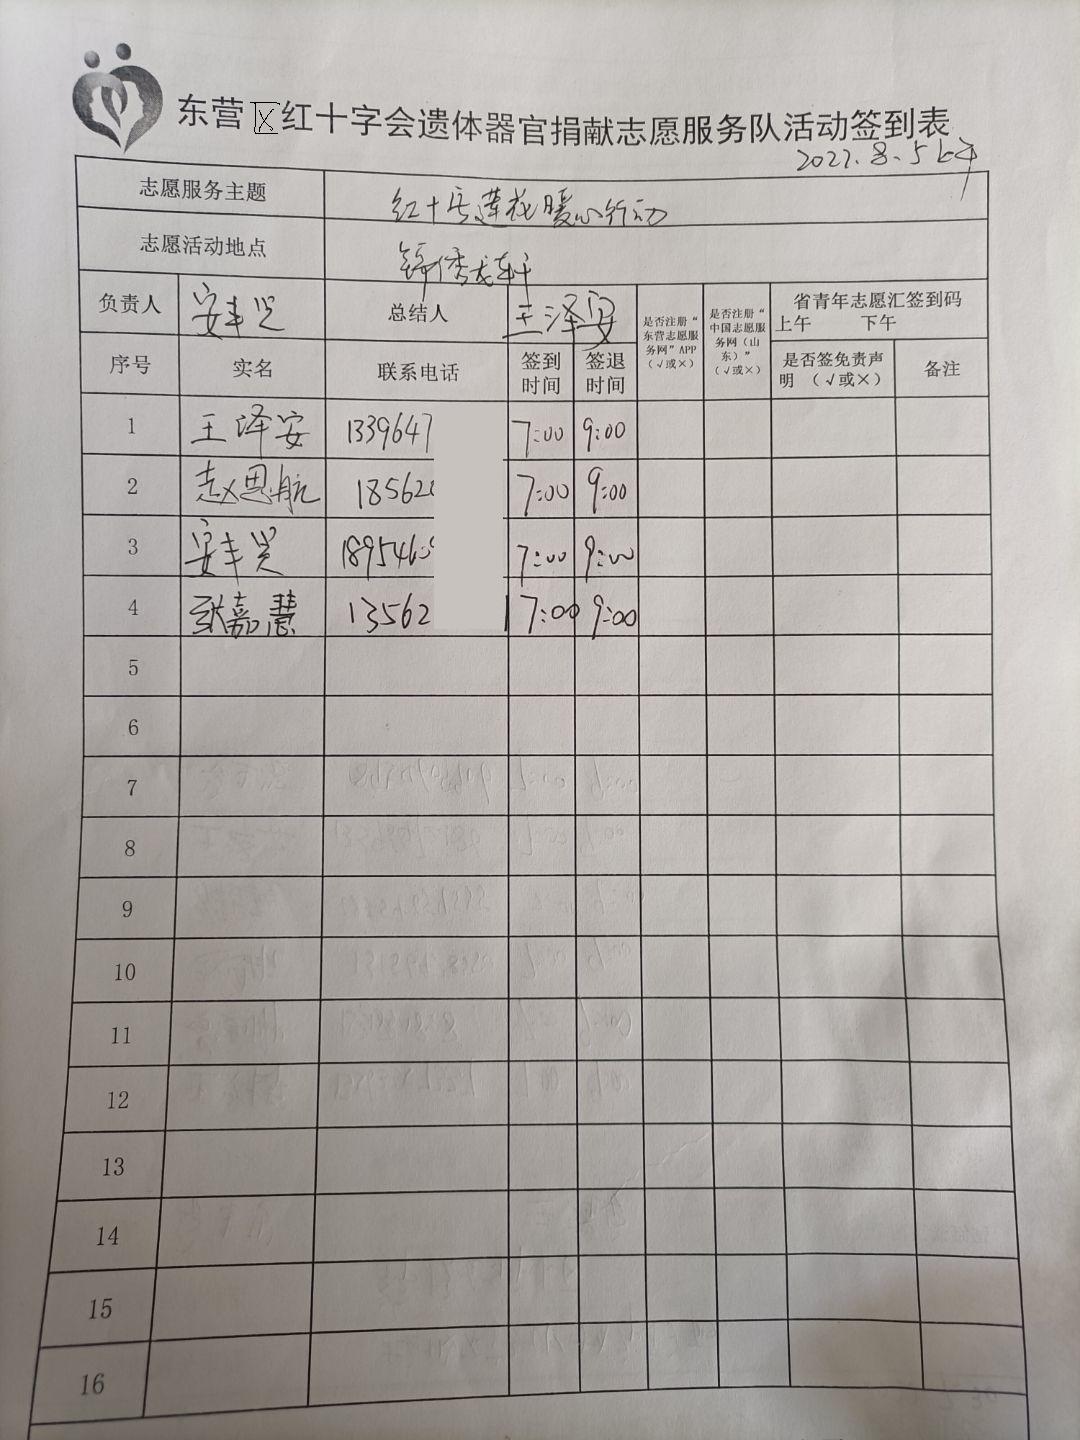 东营区红十字会遗体器官捐献志愿服务队活动签到表
2022.8.5上午
志愿服务主题 红十字莲花暖心行动
志愿活动地点 锦绣龙轩
负责人 安丰 总结人 王泽安 是否注册“东营志愿服务网”APP（√或×） 是否注册“中国志愿服务网（山东）”（√或×） 省青年志愿汇签到码
上午 下午
序号 实名 联系电话 签到时间 签退时间 是否签免责声明 （√或×） 备注
1 王泽安 1339647 7:00 9:00
2 赵思航 18562 7:00 9:00
3 安丰 189546 7:00 9:00
4 张嘉慧 13562 1 7:00 9:00
5
6
7
8
9
10
11
12
13
14
15
16